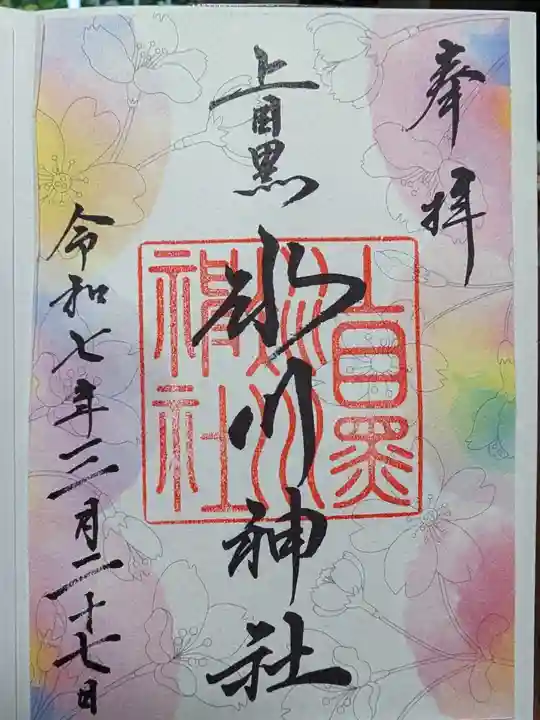 奉拝
上目黒
氷川神社
上目黒
氷川
神社
令和七年三月二十七日